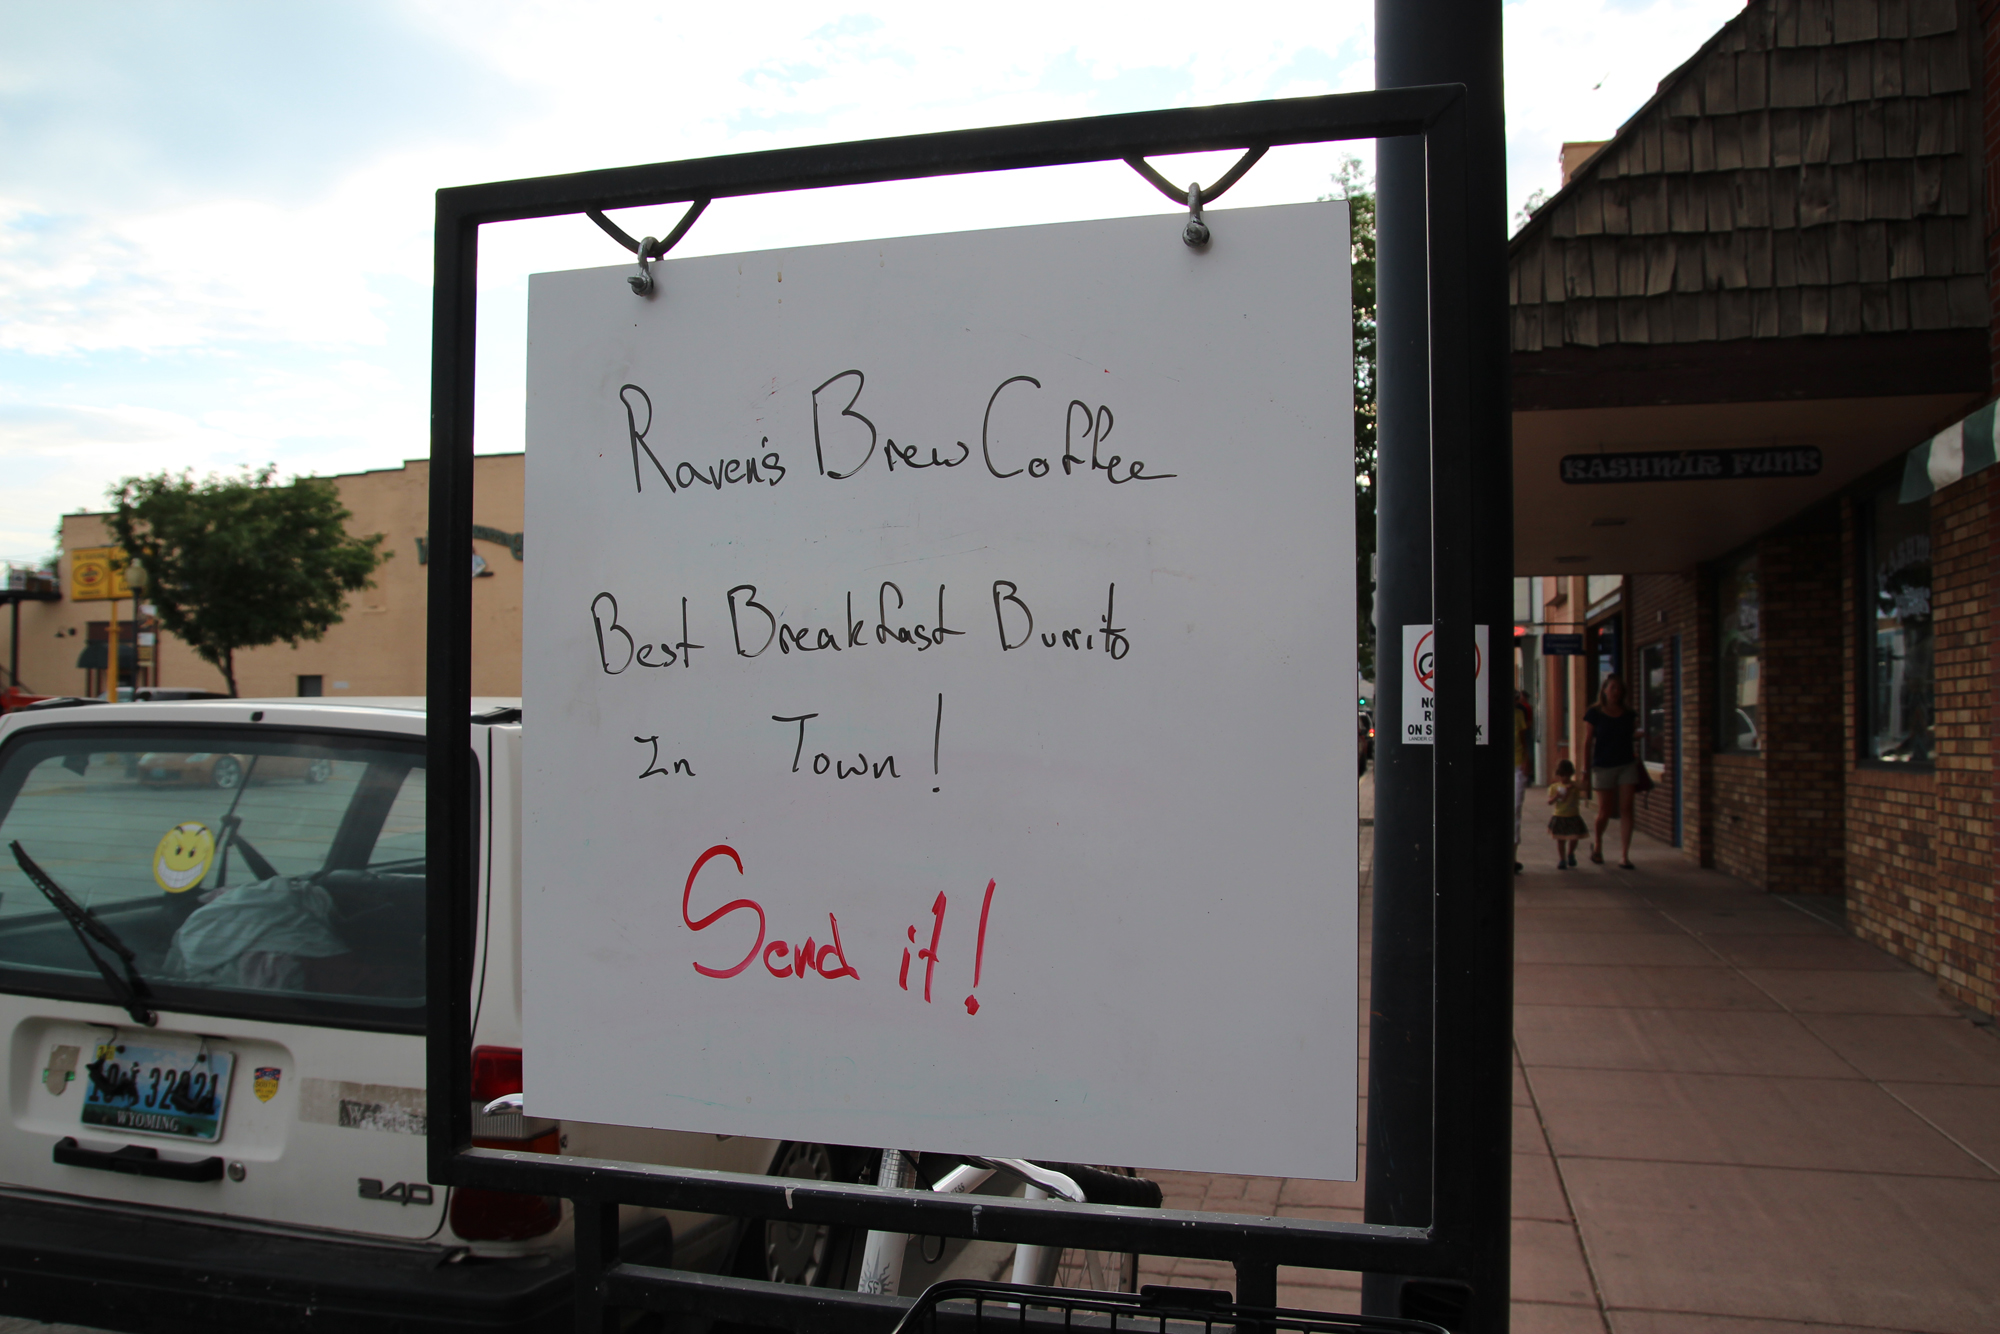 Raven's Brew Coffee
Best Breakfast Burrito
In Town!
Send it!
KASHMIR FUNK
WYOMING
240
ON S
K